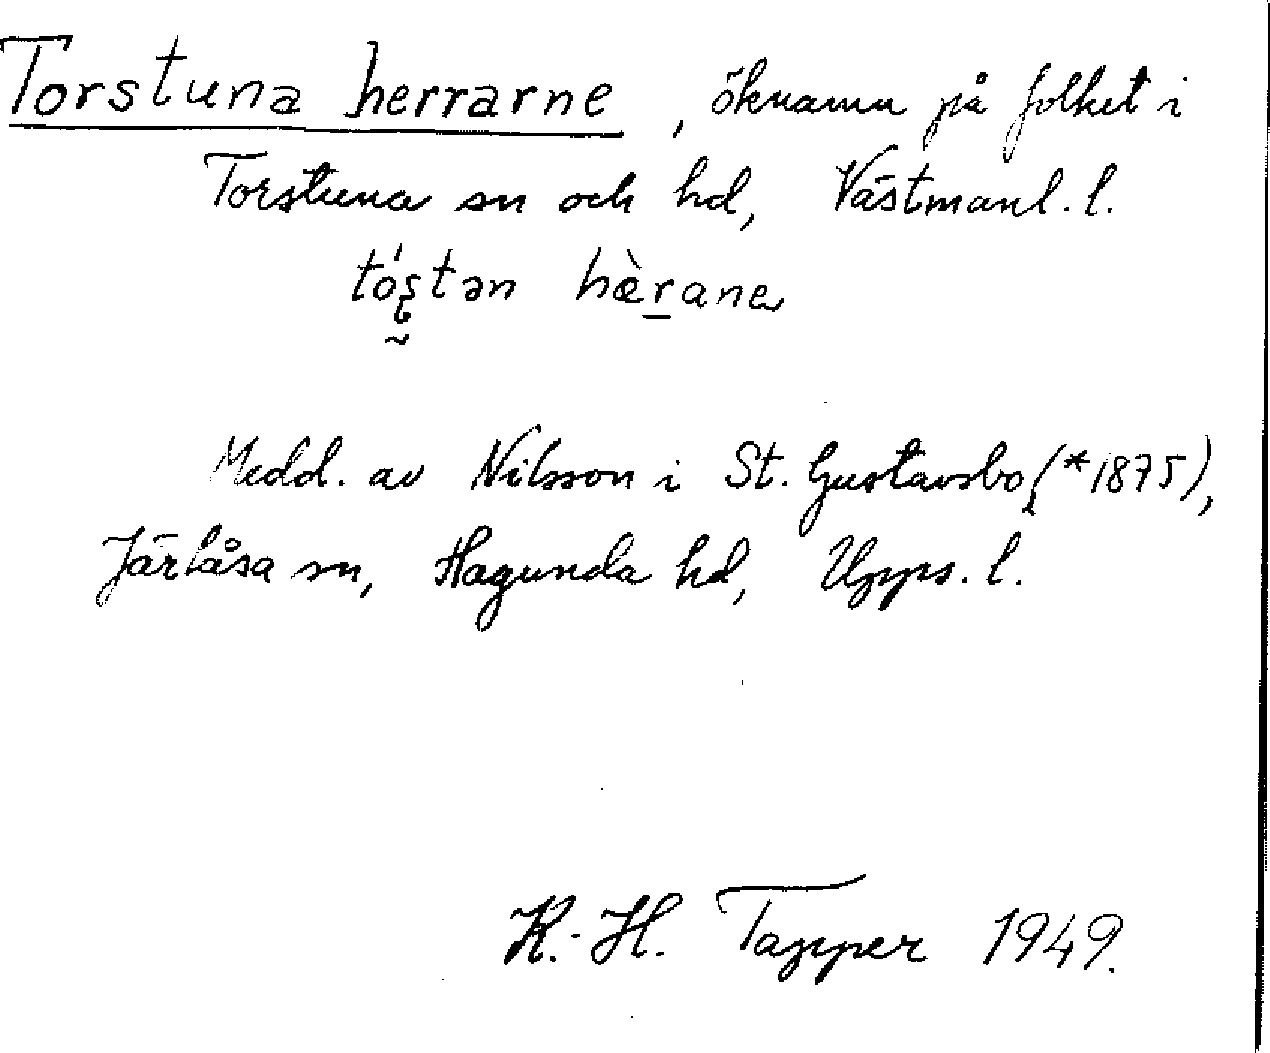 Torstuna herrarne, öknamn på folket i
Torstuna sn och hd, Västmanl. l.
tó̰ʂtən hæ̀r̲ane
Medd. av Nilsson i St. Gustavsbo (*1875),
Järlåsa sn, Hagunda hd, Upps. l.
K.-H. Tapper 1949.